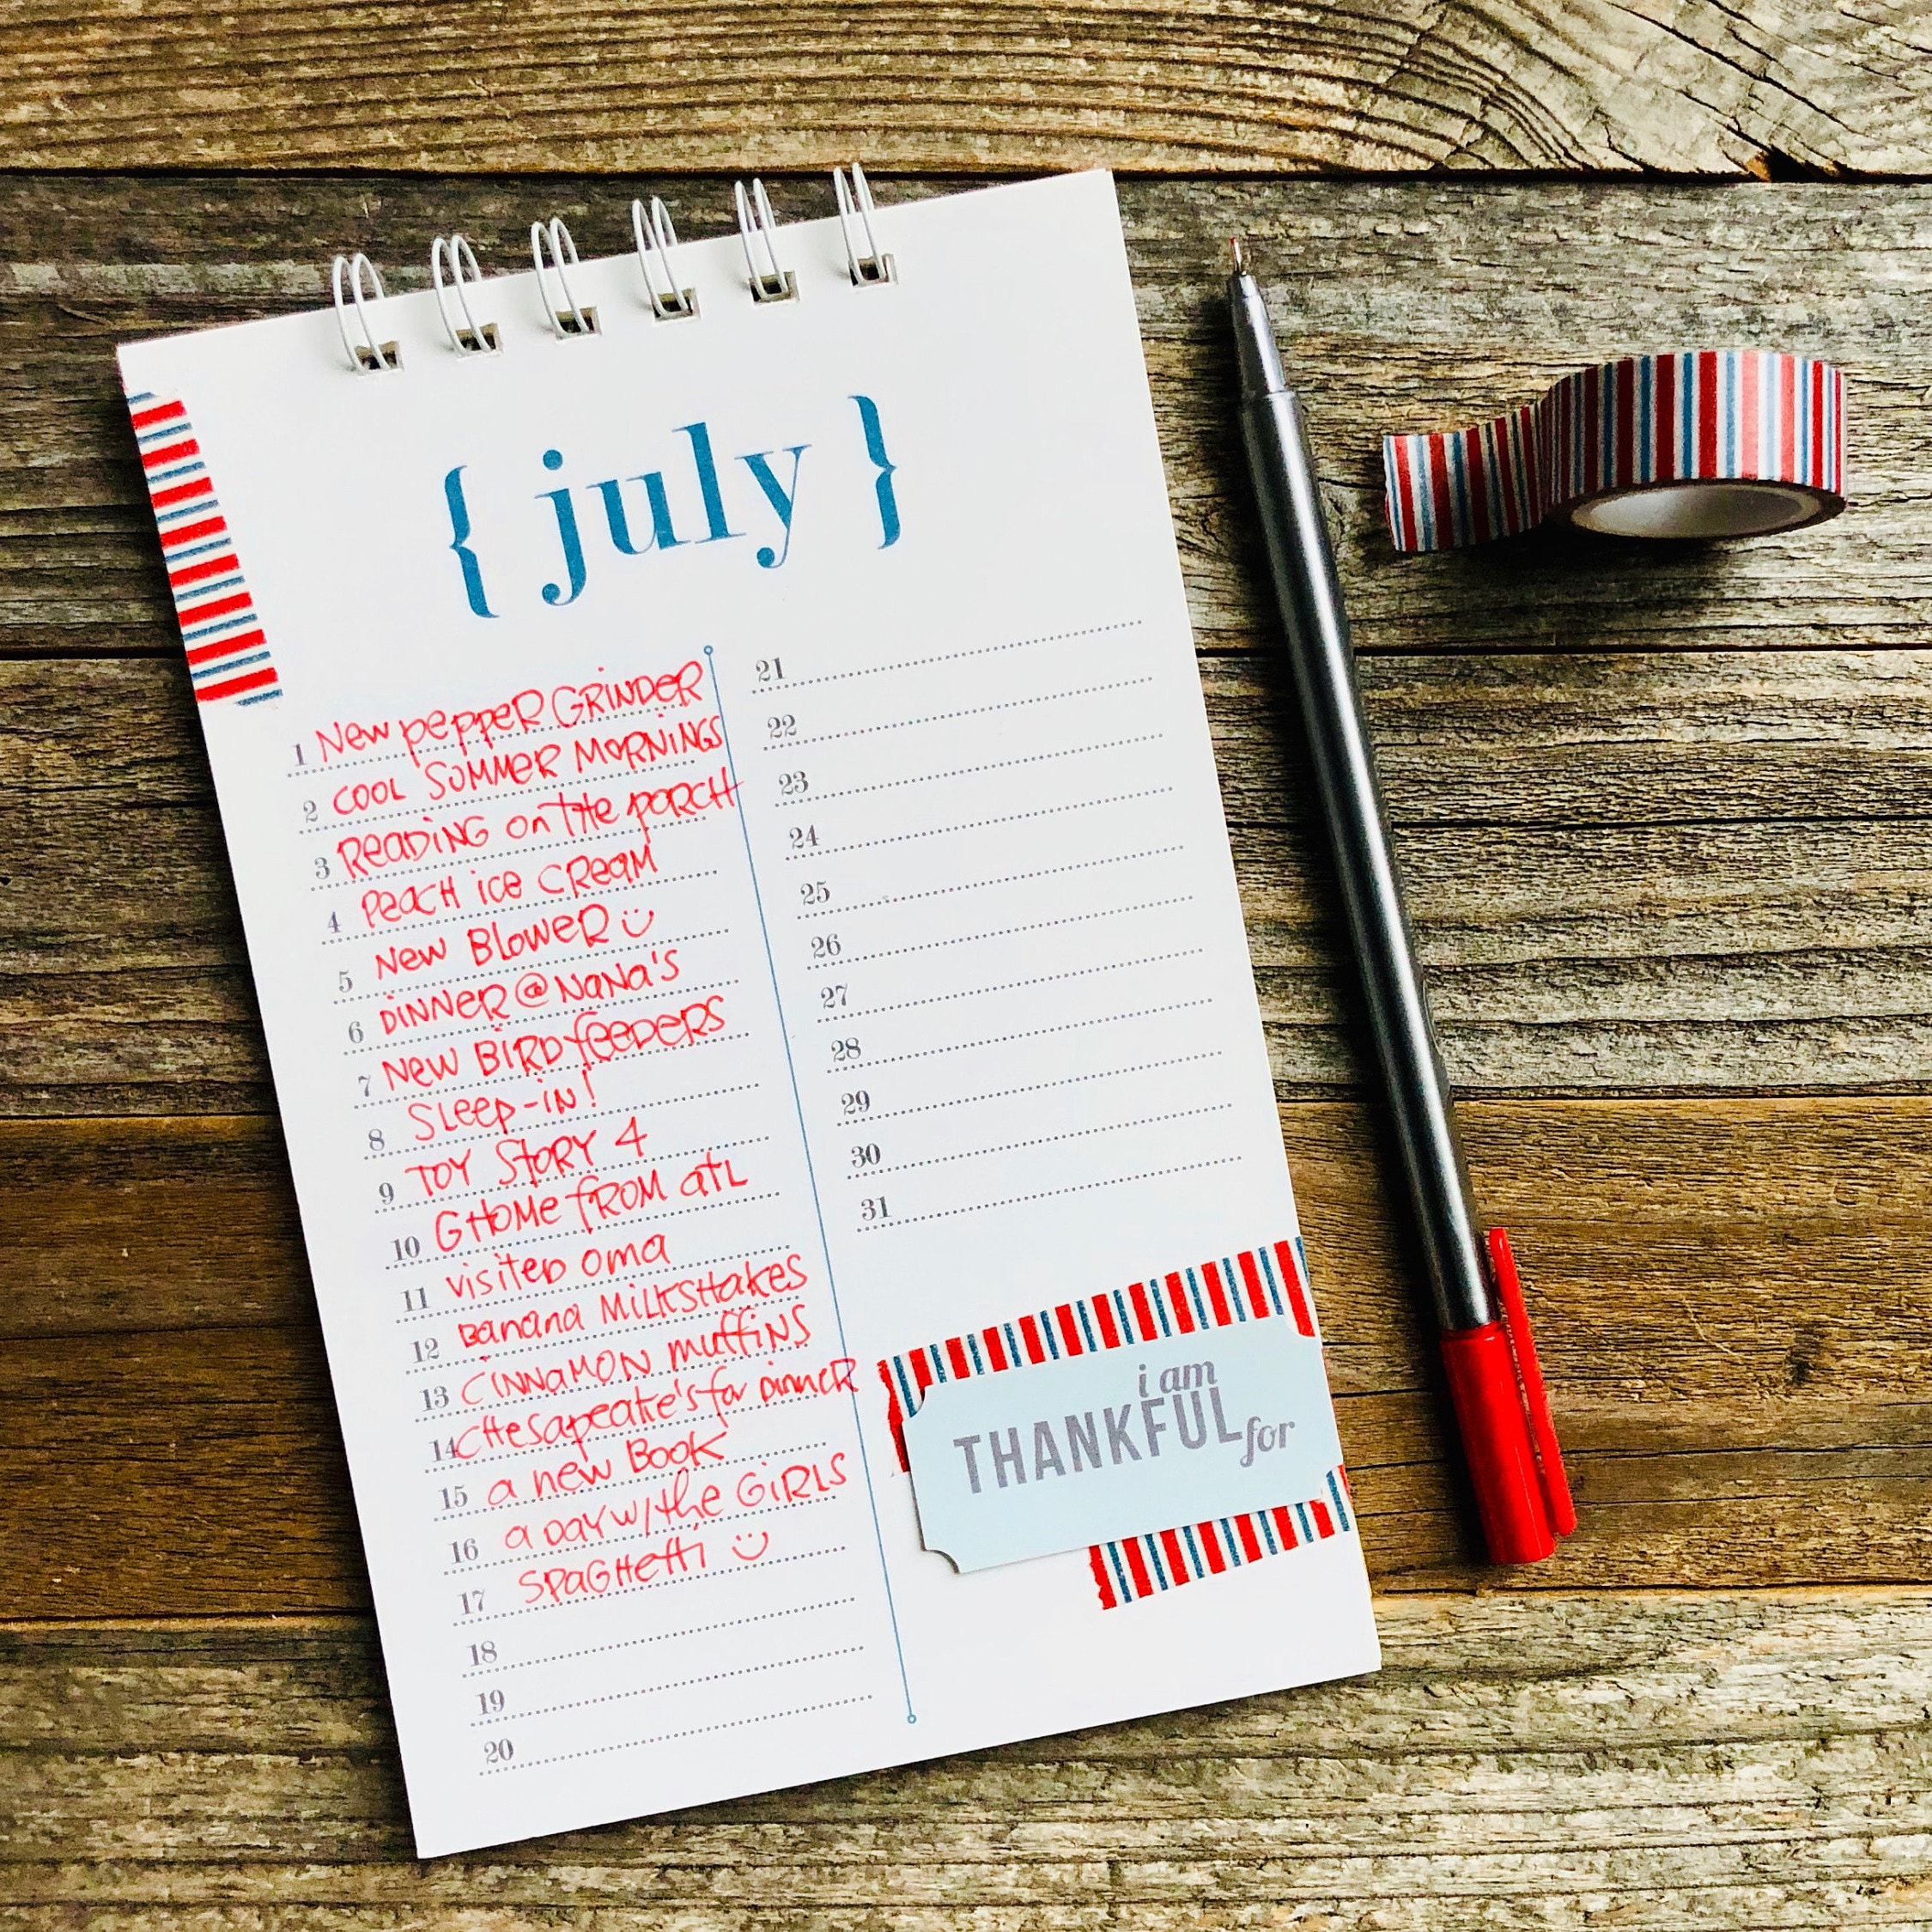 { july }
1 New pepper GRINDER
2 COOL SUMMER MORNINGS
3 READING on the porch
4 peach ice cream
5 New Blower
6 DINNER @ NaNa's
7 New BIRD feeders
8 Sleep-in!
9 TOY STORY 4
10 G HOMe fROM atL
11 visited oma
12 Banana MilkSHakes
13 CINNaMON muffins
14 CHesapeake's for DinneR
15 a new Book
16 a Day w/the GIRLS
17 SPaGHetti
18
19
20
21
22
23
24
25
26
27
28
29
30
31
i am
THANKFUL for